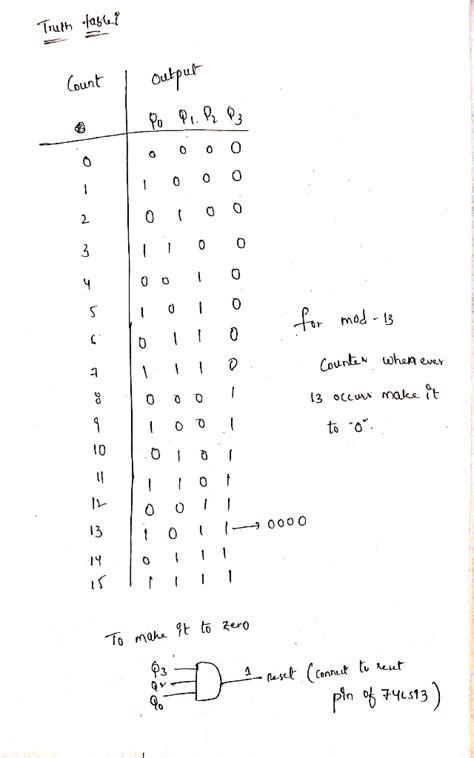 Truth table:
Count output
Q0 Q1 Q2 Q3
0 0 0 0 0
1 1 0 0 0
2 0 1 0 0
3 1 1 0 0
4 0 0 1 0
5 1 0 1 0
6 0 1 1 0
7 1 1 1 0
8 0 0 0 1
9 1 0 0 1
10 0 1 0 1
11 1 1 0 1
12 0 0 1 1
13 1 0 1 1 → 0000
14 0 1 1 1
15 1 1 1 1
for mod - 13
Counter whenever
13 occurs make it
to "0".
To make it to zero
Q3
Q2
Q0
1 reset (connect to reset
pin of 74LS93)